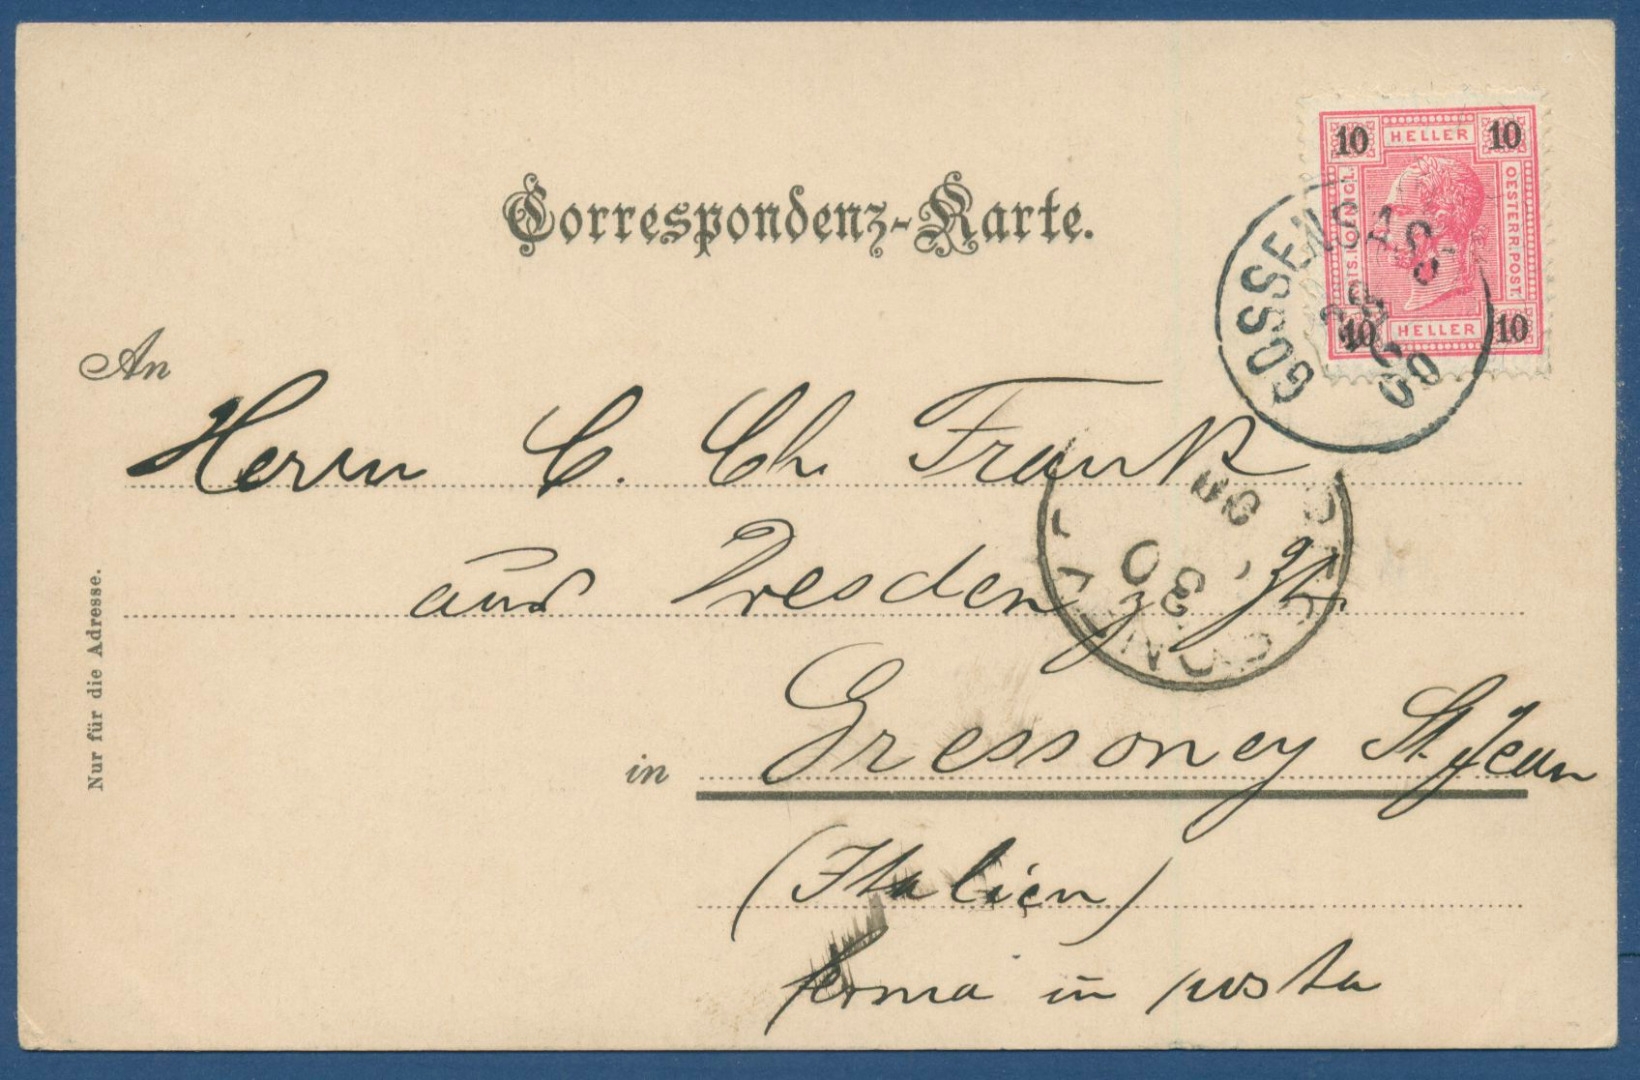 Correspondenz-Karte.
10 HELLER 10
OESTERR.POST
10 HELLER 10
GOSSENS
28
00
An
Herrn C. Ch. Frank
aus Dresden z. Zt.
in Gressoney St. Jean
(Italien)
ferma in posta
30
Nur für die Adresse.